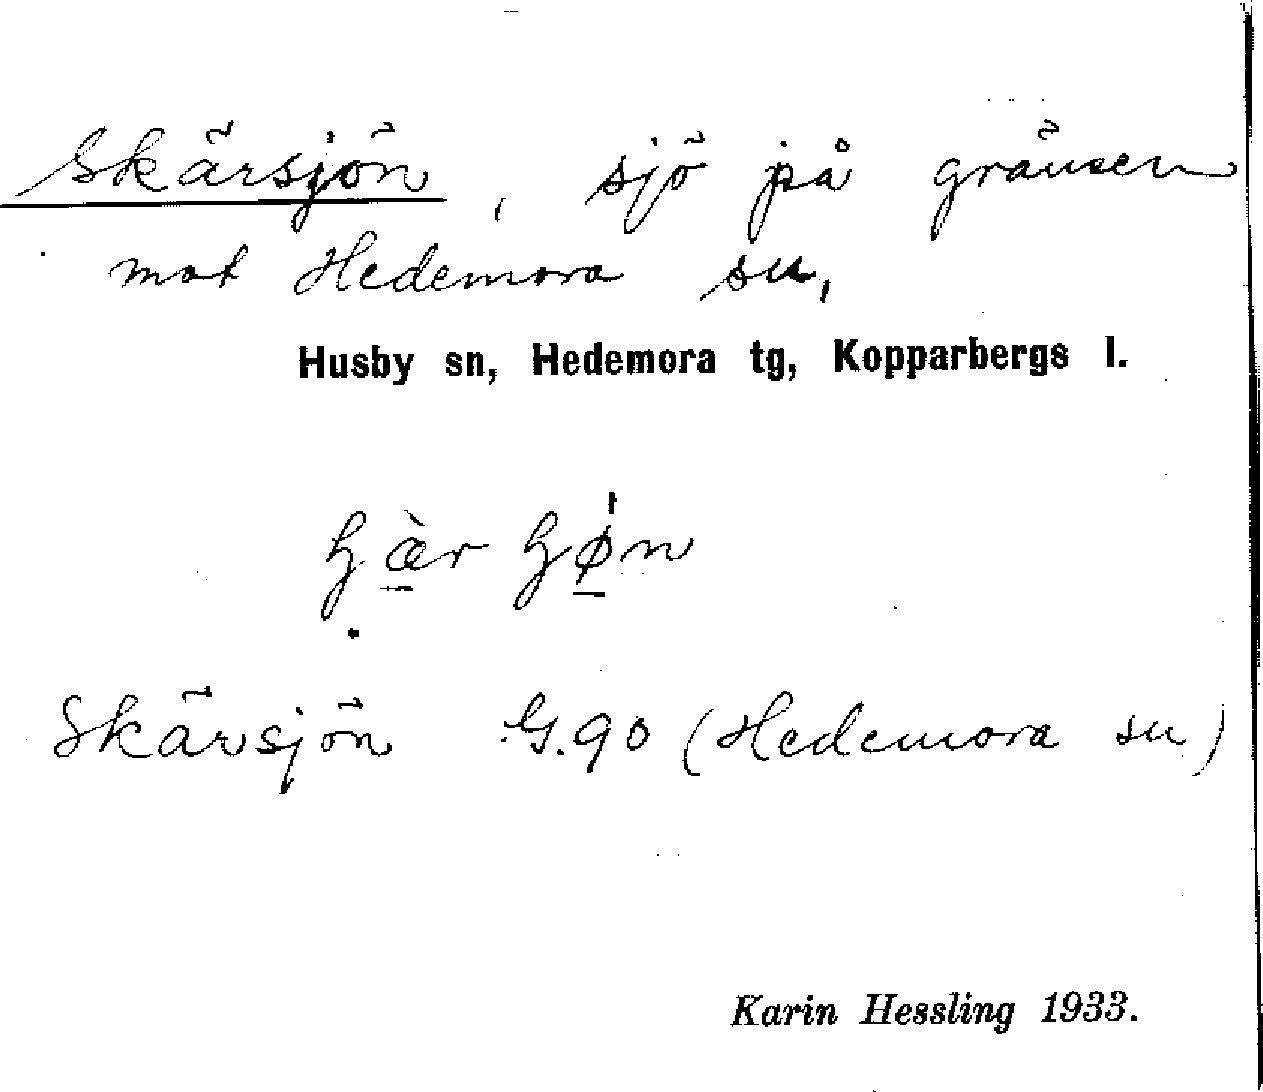 Skärsjön, sjö på gränsen
mot Hedemora sn,
Husby sn, Hedemora tg, Kopparbergs l.
Skärsjön G.90 (Hedemora sn)
Karin Hessling 1933.